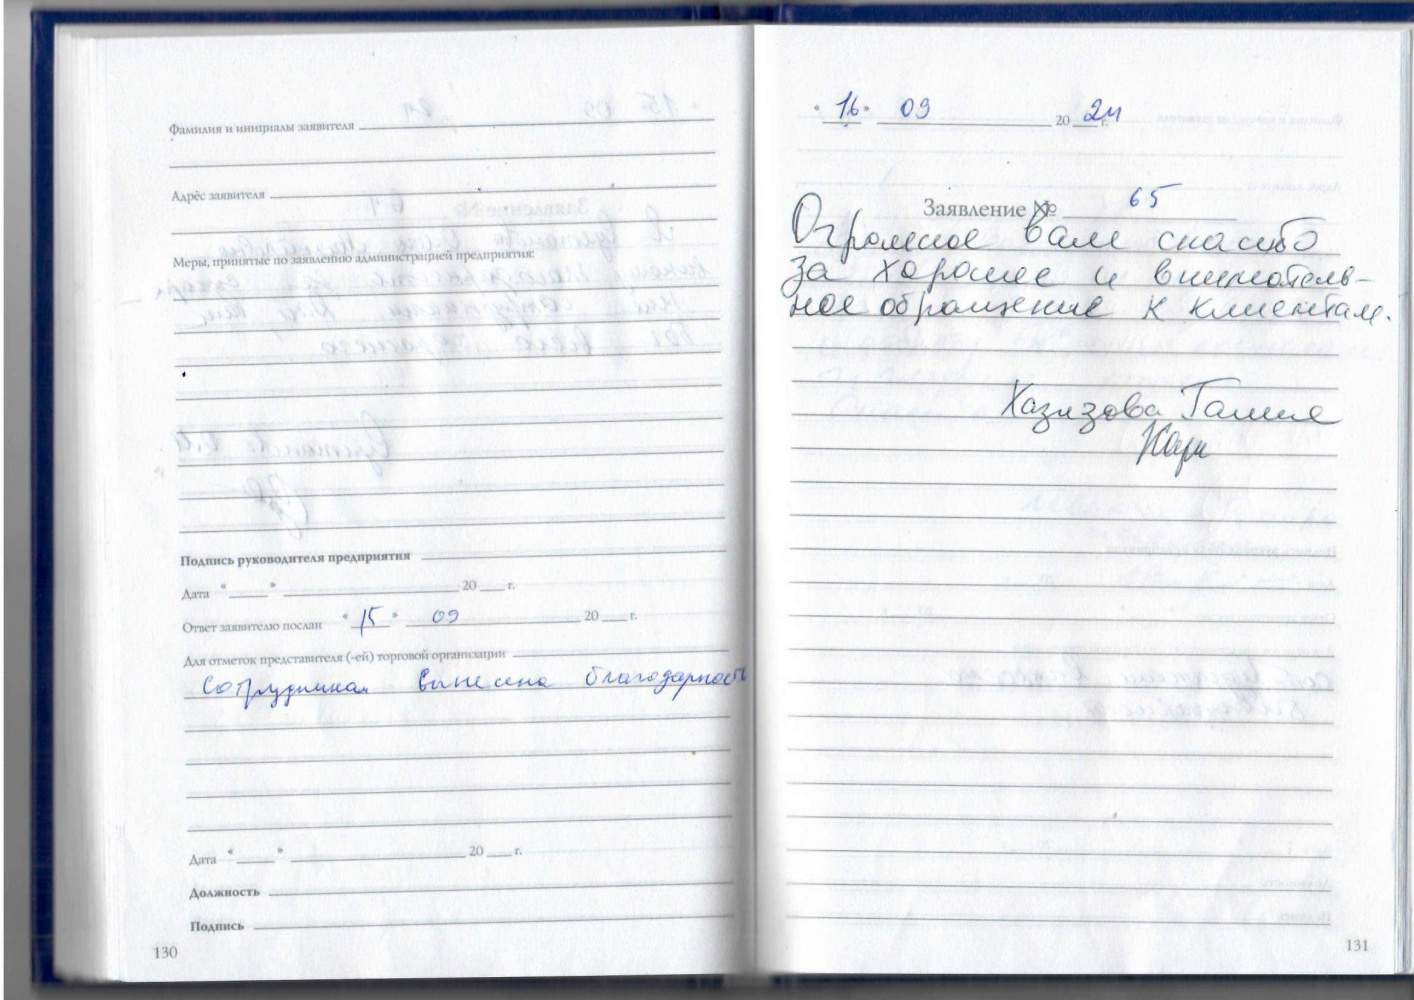 Фамилия и инициалы заявителя
Адрес заявителя
Меры, принятые по заявлению администрацией предприятия:
Подпись руководителя предприятия
Дата "____" ____ 20 ___ г.
Ответ заявителю послан "15" 09 20 ___ г.
Для отметок представителя (-ей) торговой организации
Сотрудникам вынесена благодарность
Дата "____" ____ 20 ___ г.
Должность
Подпись
130
"16" 09 2024 г.
Заявление № 65
Огромное вам спасибо
за хорошее и вниматель-
ное обращение к клиентам.
Хазизова Галия
131